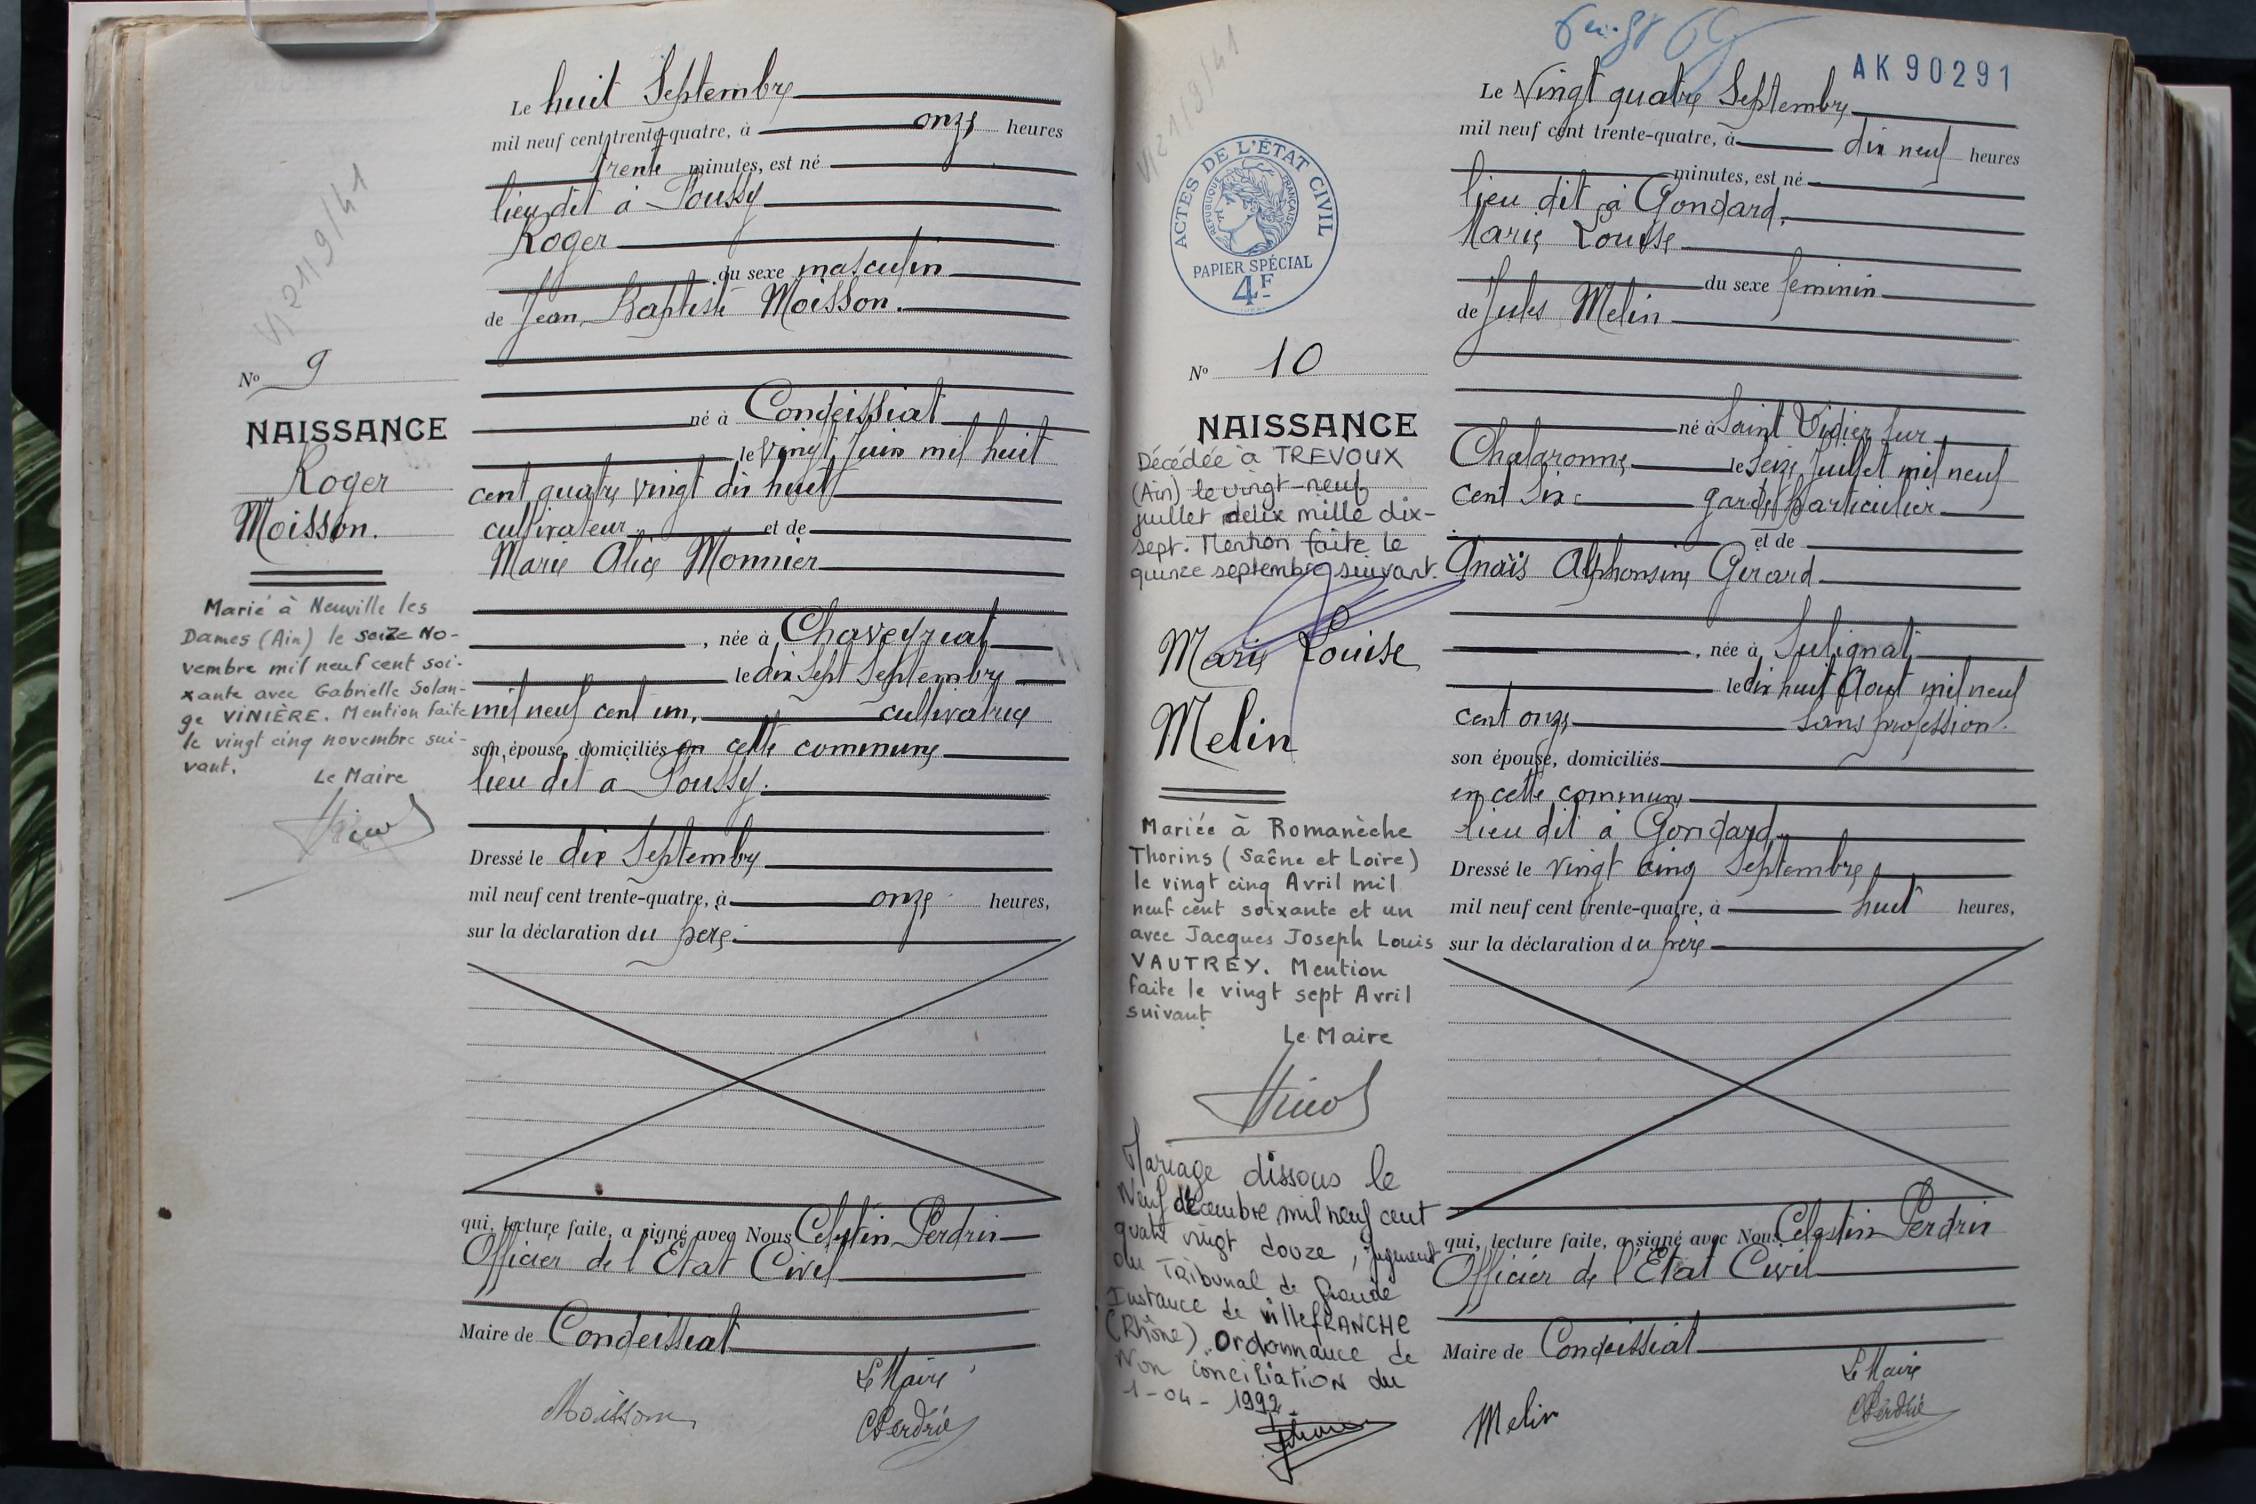 Le huit Septembre
mil neuf cent trente-quatre, à onze heures
trente minutes, est né
lieu dit à Poussy
Roger
du sexe masculin
de Jean Baptiste Moisson.
né à Condeissiat
le vingt Juin mil huit
cent quatre vingt dix huit
cultivateur et de
Marie Alice Monnier
, née à Chaveyriat
le dix sept Septembre
mil neuf cent un, cultivatrice
son épouse, domiciliés en cette commune
lieu dit à Poussy.
Dressé le dix Septembre
mil neuf cent trente-quatre, à onze heures,
sur la déclaration du père.
qui, lecture faite, a signé avec Nous Celestin Perdrix
Officier de l'Etat Civil
Maire de Condeissiat
Le Maire
Moisson
CPerdrix
VI 21/9/41
No 9
NAISSANCE
Roger
Moisson.
Marié à Neuville les
Dames (Ain) le seize No-
vembre mil neuf cent soi-
xante avec Gabrielle Solan-
ge VINIÈRE. Mention faite
le vingt cinq novembre sui-
vant.
Le Maire
AK 90291
VI 21/9/41
ACTES DE L'ÉTAT CIVIL
RÉPUBLIQUE FRANÇAISE
PAPIER SPÉCIAL
4F
No 10
NAISSANCE
Décédée à TREVOUX
(Ain) le vingt-neuf
juillet deux mille dix-
sept. Mention faite le
quinze septembre suivant.
Marie Louise
Melin
Mariée à Romanèche
Thorins (Saône et Loire)
le vingt cinq Avril mil
neuf cent soixante et un
avec Jacques Joseph Louis
VAUTREY. Mention
faite le vingt sept Avril
suivant
Le Maire
Mariage dissous le
Neuf décembre mil neuf cent
quatre vingt douze, jugement
du Tribunal de Grande
Instance de villefRANCHE
(Rhône). Ordonnance de
Non conciliation du
1-04-1992.
Le Vingt quatre Septembre
mil neuf cent trente-quatre, à dix neuf heures
minutes, est né
lieu dit à Gondard,
Marie Louise
du sexe feminin
de Jules Melin
né à Saint Didier sur
Chalaronne le seize Juillet mil neuf
cent six garde particulier
et de
Anaïs Alphonsine Gerard
, née à Sulignat
le dix huit Aout mil neuf
cent onze sans profession.
son épouse, domiciliés
en cette commune
lieu dit à Gondard
Dressé le vingt cinq Septembre
mil neuf cent trente-quatre, à huit heures,
sur la déclaration du père
qui, lecture faite, a signé avec Nous Celestin Perdrix
Officier de l'Etat Civil
Maire de Condeissiat
Le Maire
Melin
CPerdrix